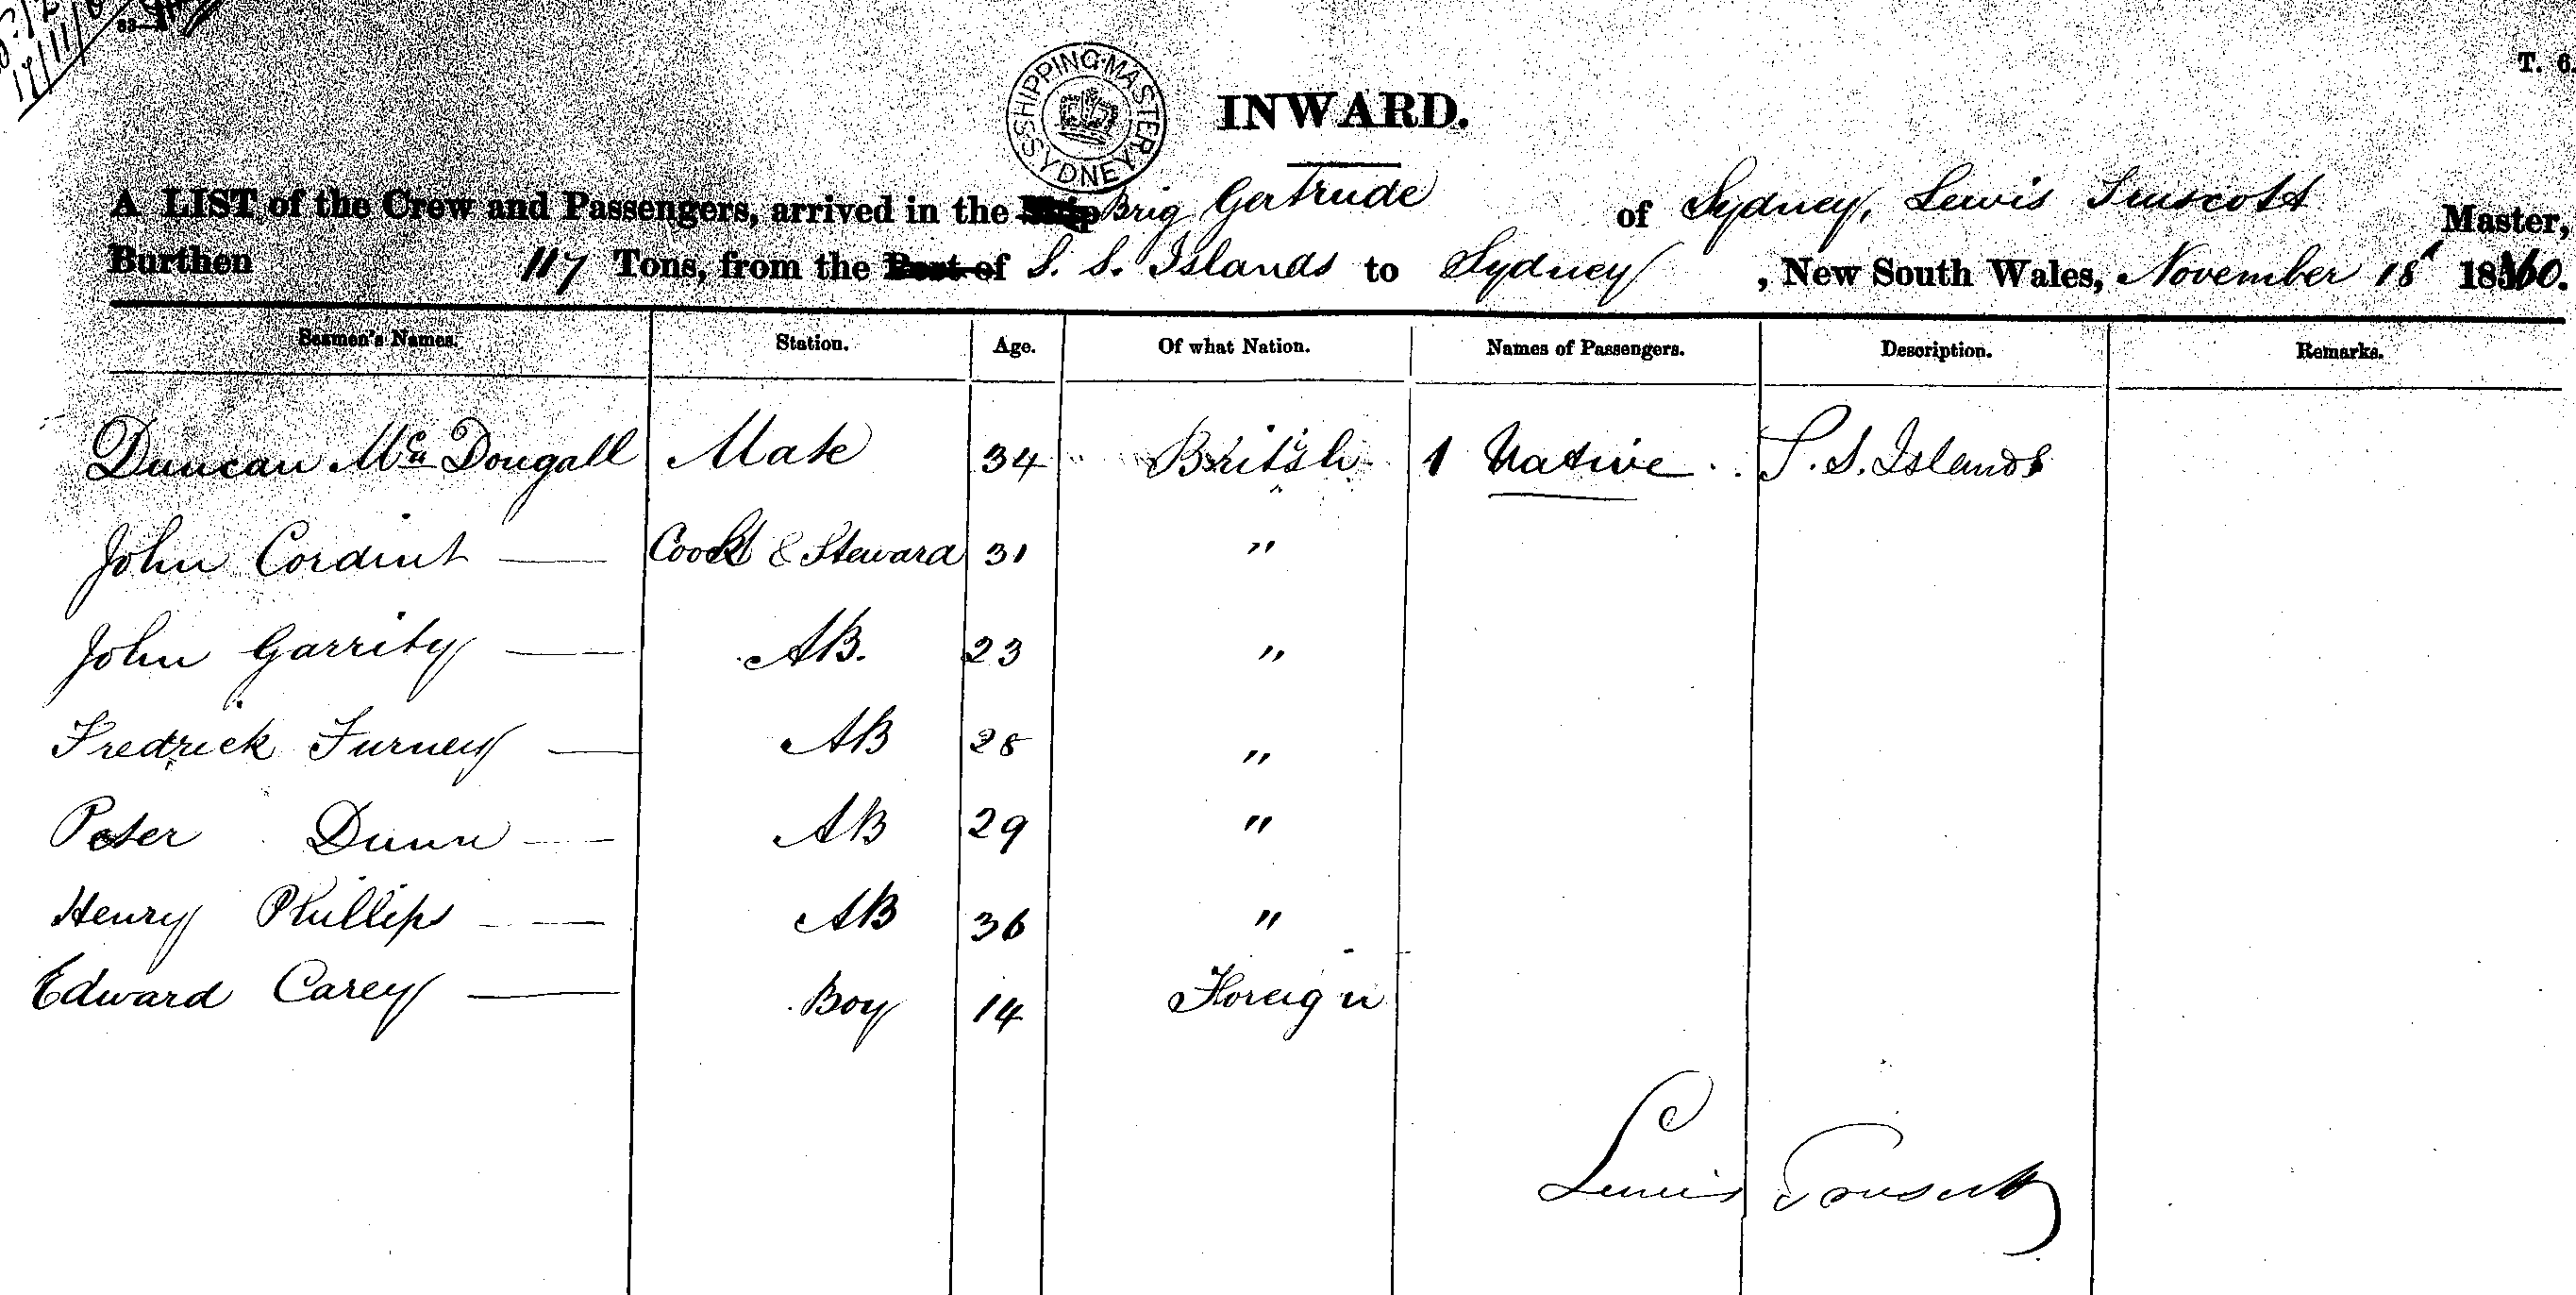 T. 6.
SHIPPING MASTER SYDNEY
INWARD.
A LIST of the Crew and Passengers, arrived in the Ship Brig Gertrude of Sydney, Lewis Truscott Master,
Burthen 117 Tons, from the Port of S. S. Islands to Sydney, New South Wales, November 18 1860.
Seamen's Names. Station. Age. Of what Nation. Names of Passengers. Description. Remarks.
Duncan Mc Dougall Mate 34 British 1 Native S. S. Islands
John Cordint Cook & Steward 31 "
John Garrity AB. 23 "
Fredrick Furney AB 28 "
Peter Dunn AB 29 "
Henry Phillips AB 36 "
Edward Carey Boy 14 Foreign
Lewis Truscott